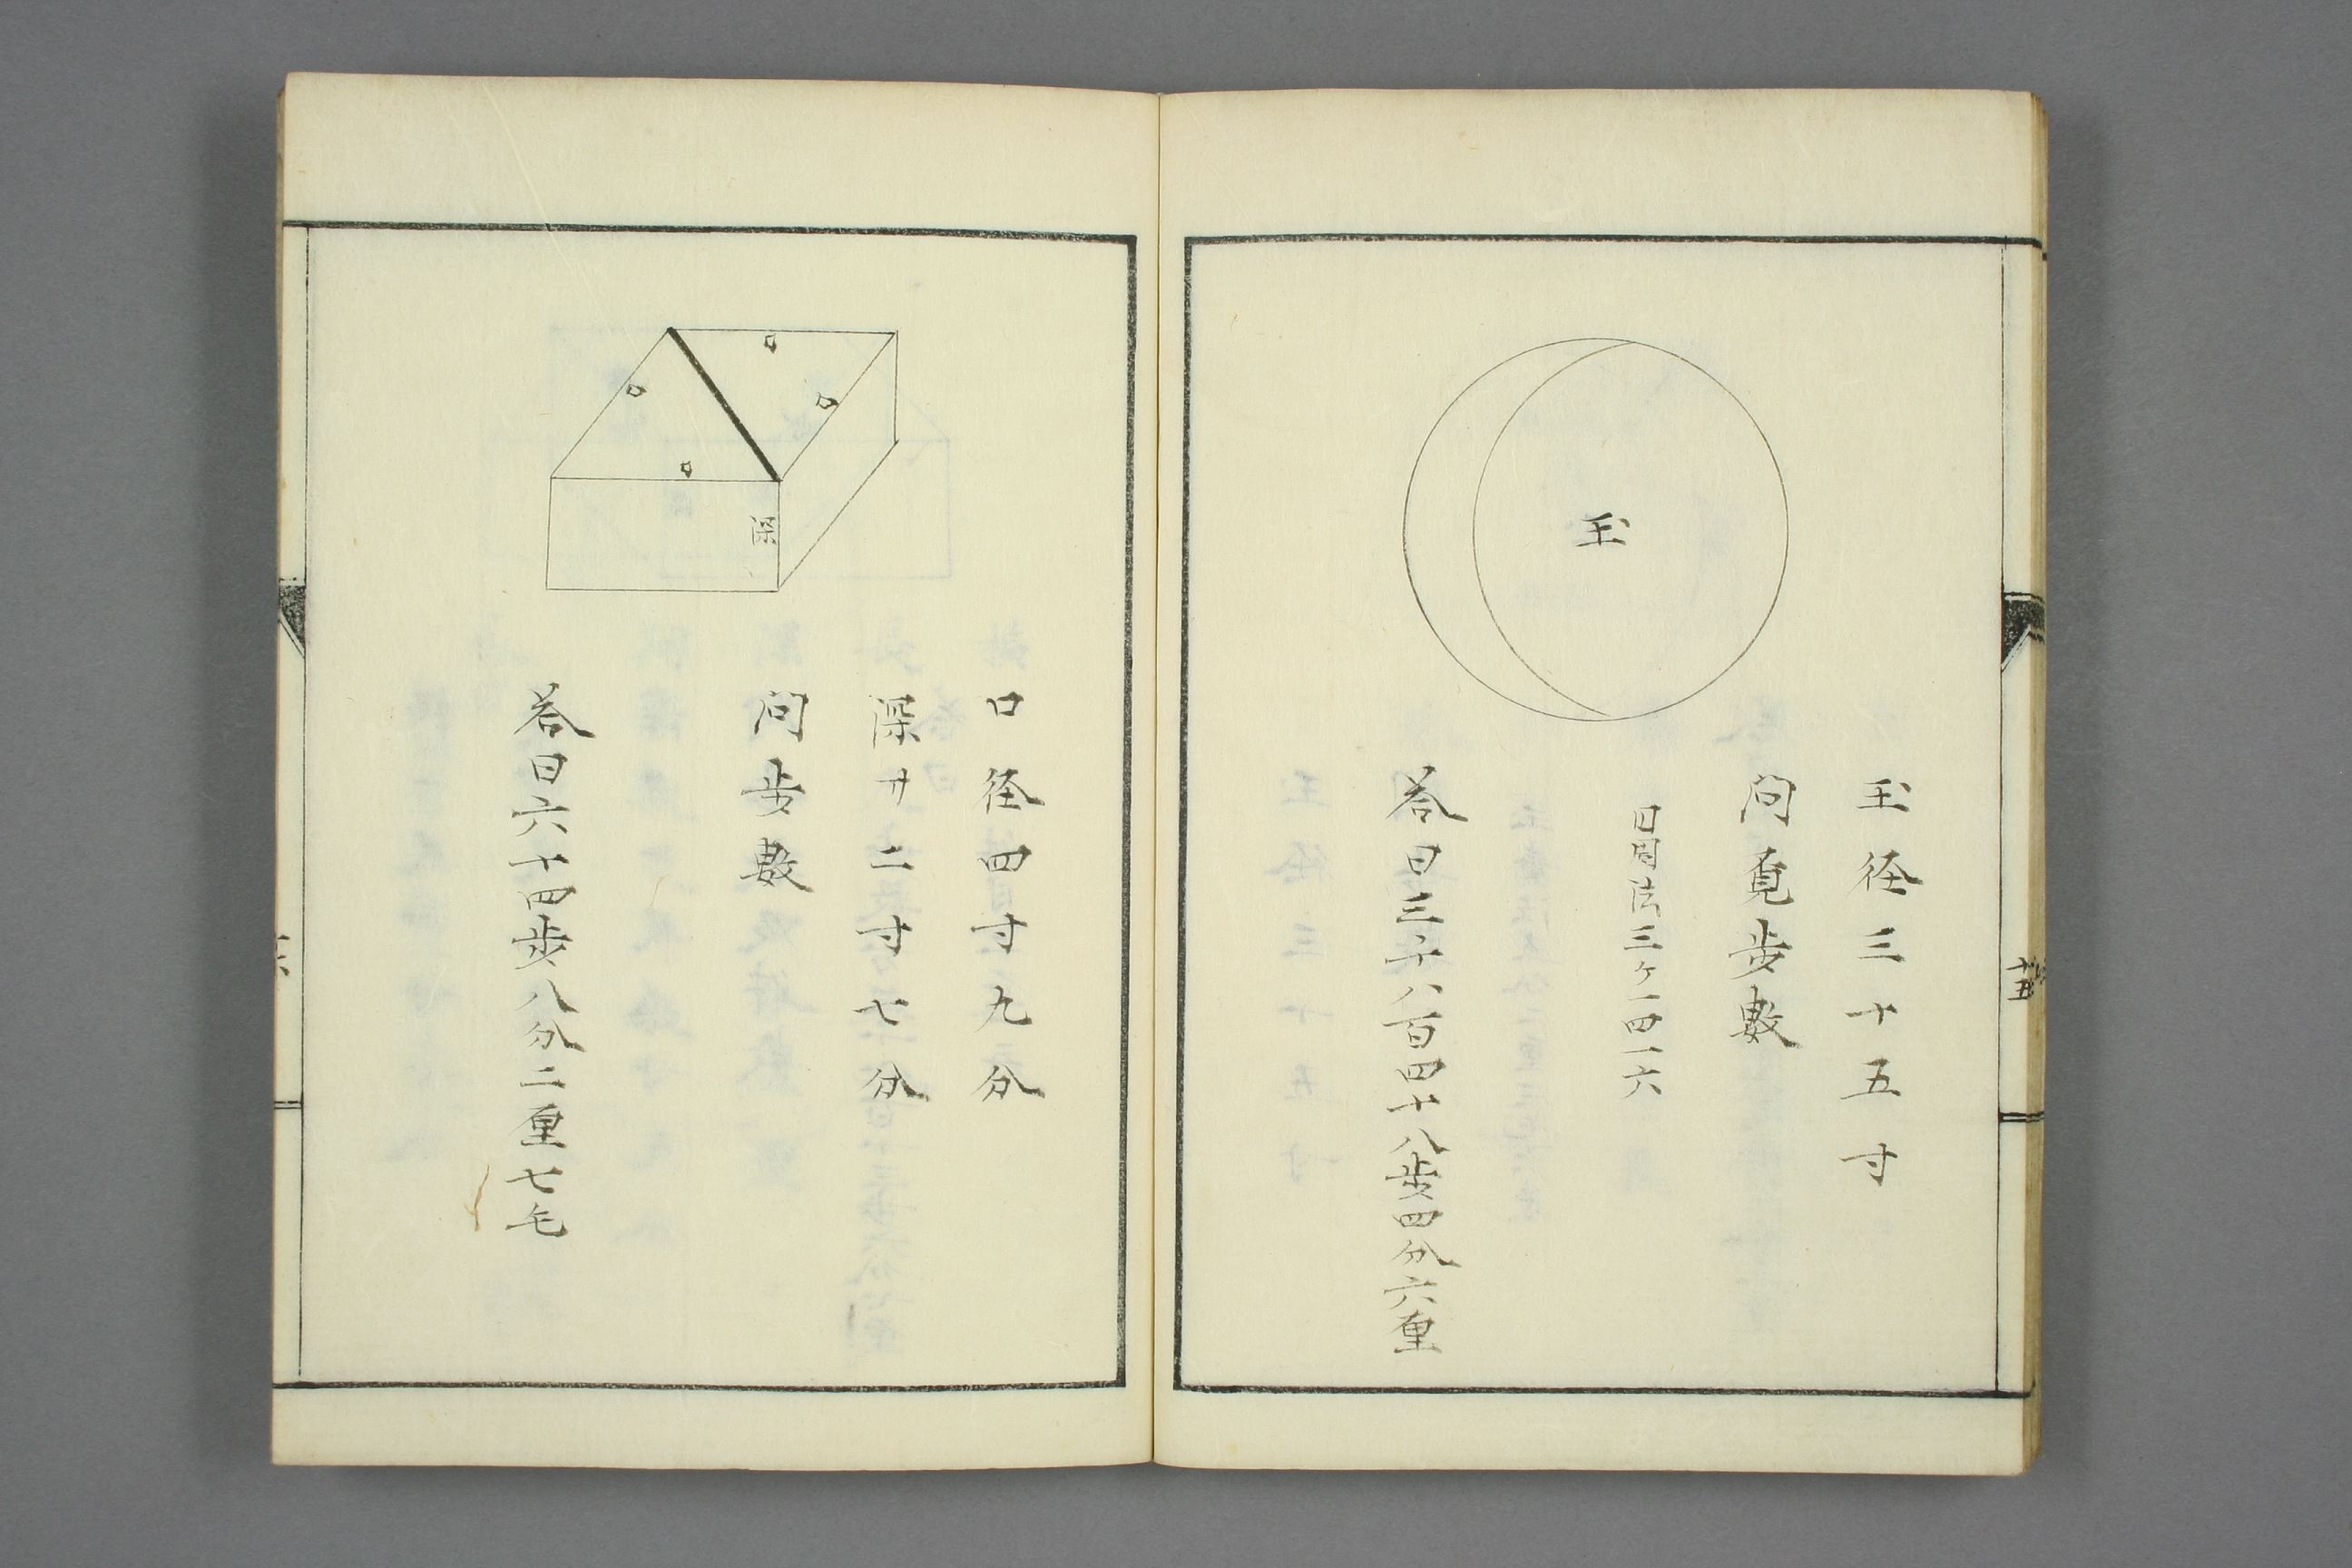 玉
玉径三十五寸
問覓歩數
円周法三ケ一四一六
答曰三千八百四十八歩四分六厘
十五
口
口
口
口
深
口径四寸九分
深サ二寸七分
問歩數
答曰六十四歩八分二厘七毛